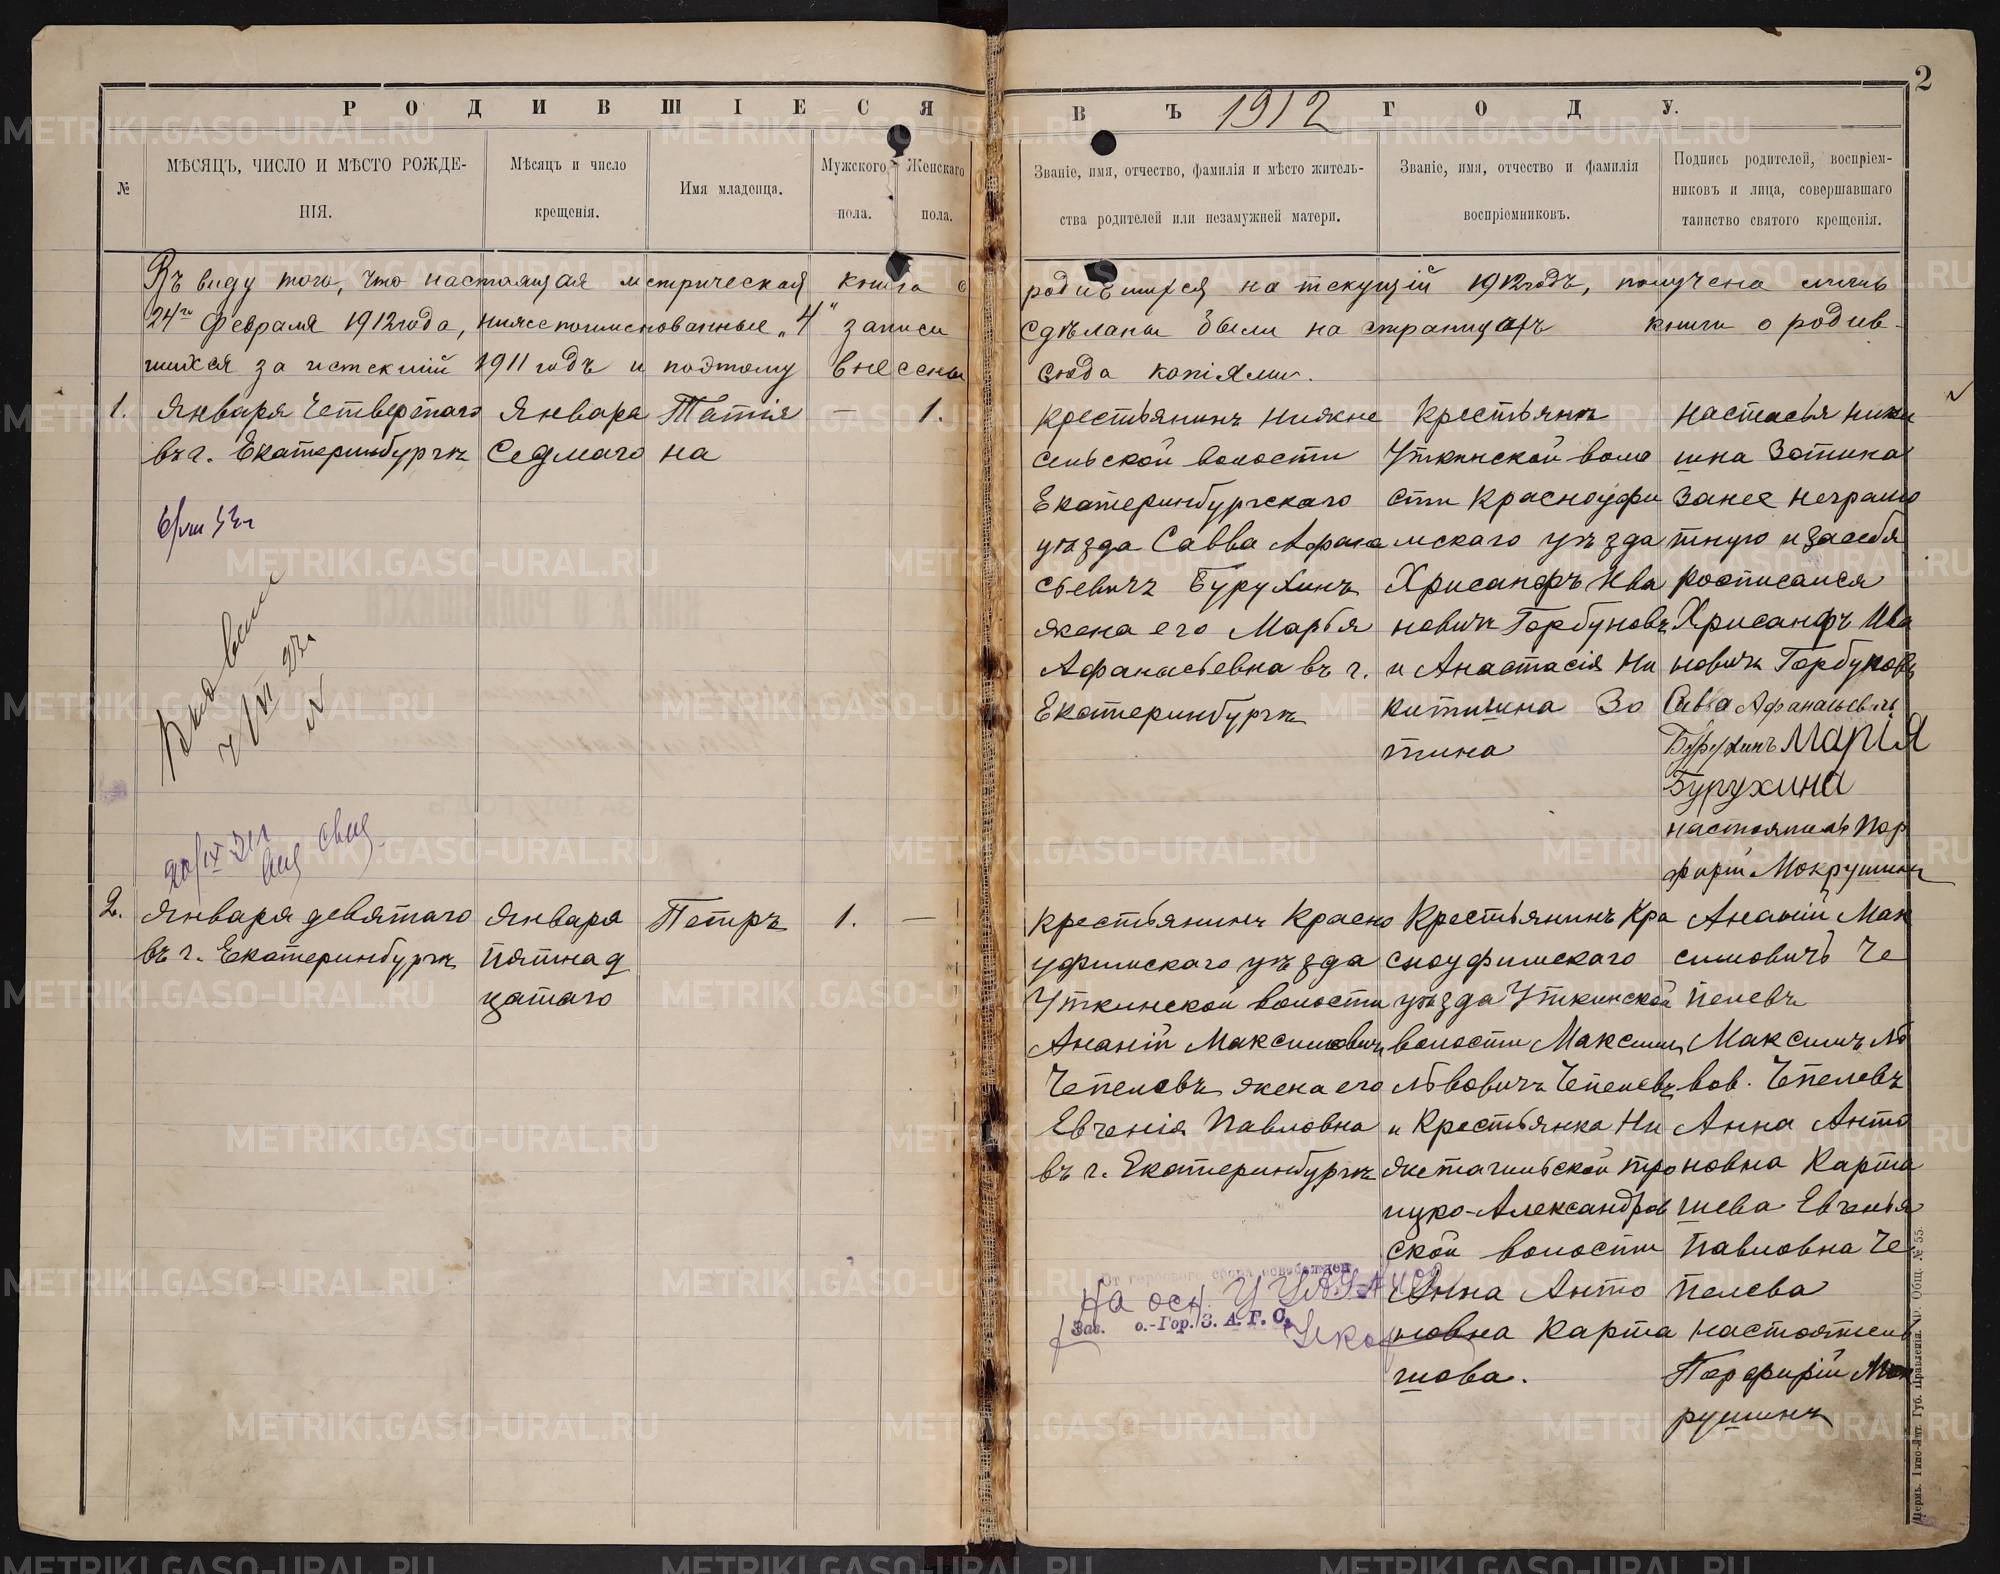 РОДИВШІЕСЯ
ВЪ 1912 ГОДУ.
2
№
МѢСЯЦЪ, ЧИСЛО И МѢСТО РОЖДЕ-
НІЯ.
Мѣсяцъ и число
крещенія.
Имя младенца.
Мужского
пола.
Женскаго
пола.
Званіе, имя, отчество, фамилія и мѣсто житель-
ства родителей или незамужней матери.
Званіе, имя, отчество и фамилія
воспріемниковъ.
Подпись родителей, воспріем-
никовъ и лица, совершавшаго
таинство святого крещенія.
Въ виду того, что настоящая метрическая книга о родившихся на текущій 1912 годъ, получена лишь
24го Февраля 1912 года, нижепоименованные „4" записи сдѣланы были на страницахъ книги о родив-
шихся за истекшій 1911 годъ и поэтому внесены сюда копіями.
1.
Января Четвертаго
въ г. Екатеринбургѣ
Января
Седмаго
Татія
на
—
1.
Крестьянинъ Нижне
сельской волости
Екатеринбургскаго
уѣзда Савва Афана
сьевичъ Бурухинъ
жена его Марья
Афанасьевна въ г.
Екатеринбургѣ
Крестьянъ
Уткинской воло
сти Красноуфи
мскаго уѣзда
Хрисанфъ Ива
новичъ Горбуновъ
и Анастасія Ни
китишна Зо
тина
Настасья Ники
шна Зотина
За нее неграмо
тную и за себя
росписался
Хрисанфъ Ива
новичъ Горбуновъ
Савва Афанасьевичъ
Бурухинъ Марія
Бурухина
настоятель Пор
фирій Мокрушинъ
20/IX 31 г.
2.
Января девятаго
въ г. Екатеринбургѣ
Января
Пятнад
цатаго
Петръ
1.
—
Крестьянинъ Красно
уфимскаго уѣзда
Уткинской волости
Ананій Максимовичъ
Чепелевъ жена его
Евгенія Павловна
въ г. Екатеринбургѣ
Крестьянинъ Кра
сноуфимскаго
уѣзда Уткинской
волости Максимъ
Львовичъ Чепелевъ
и Крестьянка Ни
жетагильской Тро
ицко-Александров
ской волости
Анна Анто
новна Карта
шова.
Ананій Мак
симовичъ Че
пелевъ
Максимъ Ль
вов. Чепелевъ
Анна Анто
новна Карта
шева Евгенья
Павловна Че
пелева
настоятель
Порфирій Мок
рушинъ
От гербового сбора освобожден
На осн.
Зав. о.-Гор. З. А. Г. С.
Пермь. Типо-Лит. Губ. Правленія. Ю. Общ. № 55.
METRIKI.GASO-URAL.RU